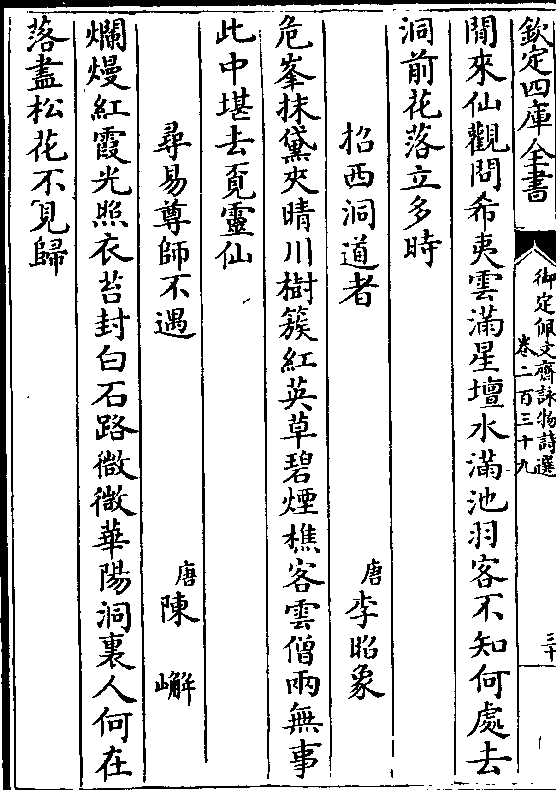 欽定四庫全書
御定佩文齋詠物詩選
卷二百三十九
三十
閒來仙觀問希夷雲滿星壇水滿池羽客不知何處去
洞前花落立多時
招西洞道者
唐李昭象
危峯抹黛夾晴川樹簇紅英草碧煙樵客雲僧兩無事
此中堪去覔靈仙
尋易尊師不遇
唐陳嶰
爛熳紅霞光照衣苔封白石路微微華陽洞裏人何在
落盡松花不見歸